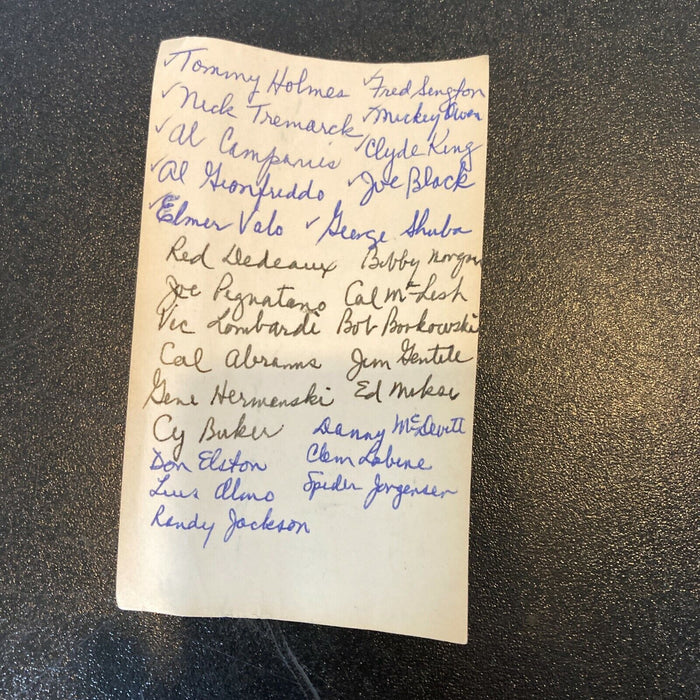 ✓Tommy Holmes ✓Fred Sington
✓Nick Tremarck ✓Mickey Owen
✓Al Campanis ✓Clyde King
✓Al Gionfriddo ✓Joe Black
✓Elmer Valo ✓George Shuba
Red Dedeaux Bobby Morgan
Joe Pignatano Cal McLish
Vic Lombardi Bob Borkowski
Cal Abrams Jim Gentile
Gene Hermanski Ed Miksi
Cy Buker Danny McDevitt
Don Elston Clem Labine
Luis Olmo Spider Jorgensen
Randy Jackson